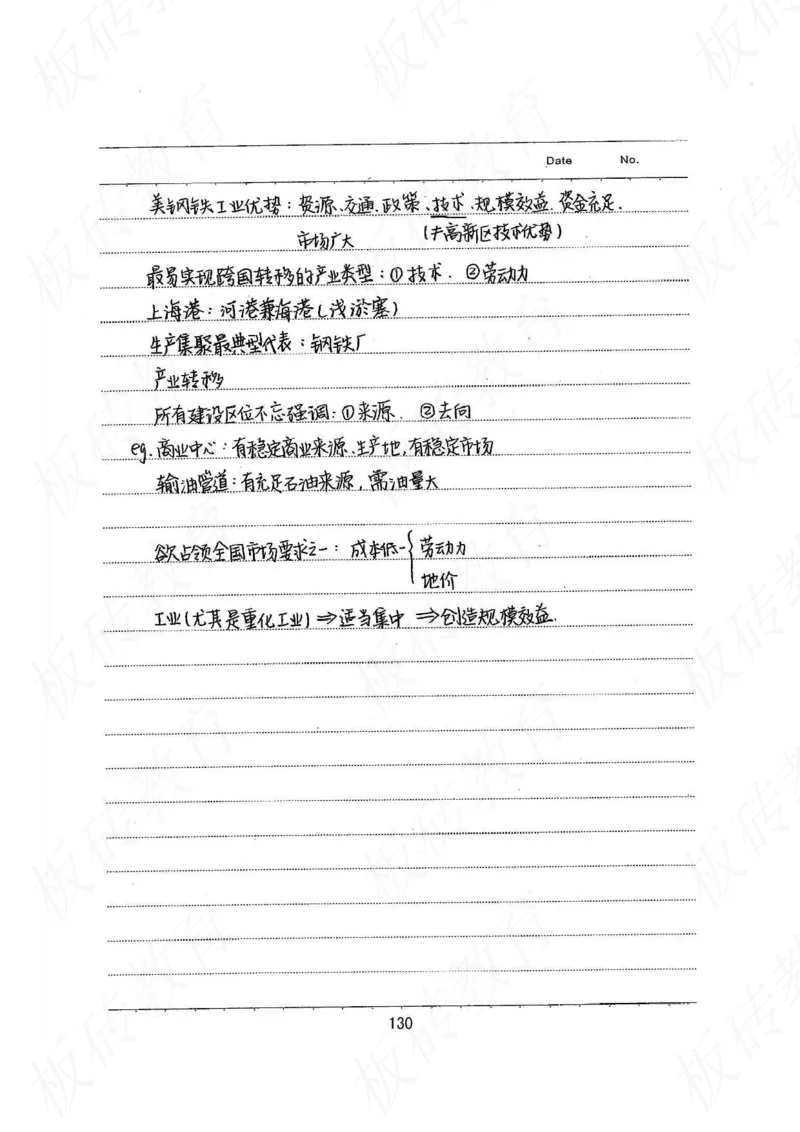 Date No.
美钢铁工业优势：资源、交通、政策、技术、规模效益、资金充足、
市场广大 (≠高新区技术优势)
最易实现跨国转移的产业类型：①技术. ②劳动力
上海港：河港兼海港(浅淤塞)
生产集聚最典型代表：钢铁厂
产业转移
所有建设区位不忘强调：①来源. ②去向
eg.商业中心：有稳定商业来源、生产地，有稳定市场
输油管道：有充足石油来源，需油量大
欲占领全国市场要求之一：成本低-{劳动力
地价
工业(尤其是重化工业)⇒适当集中⇒创造规模效益.
130
板砖教育